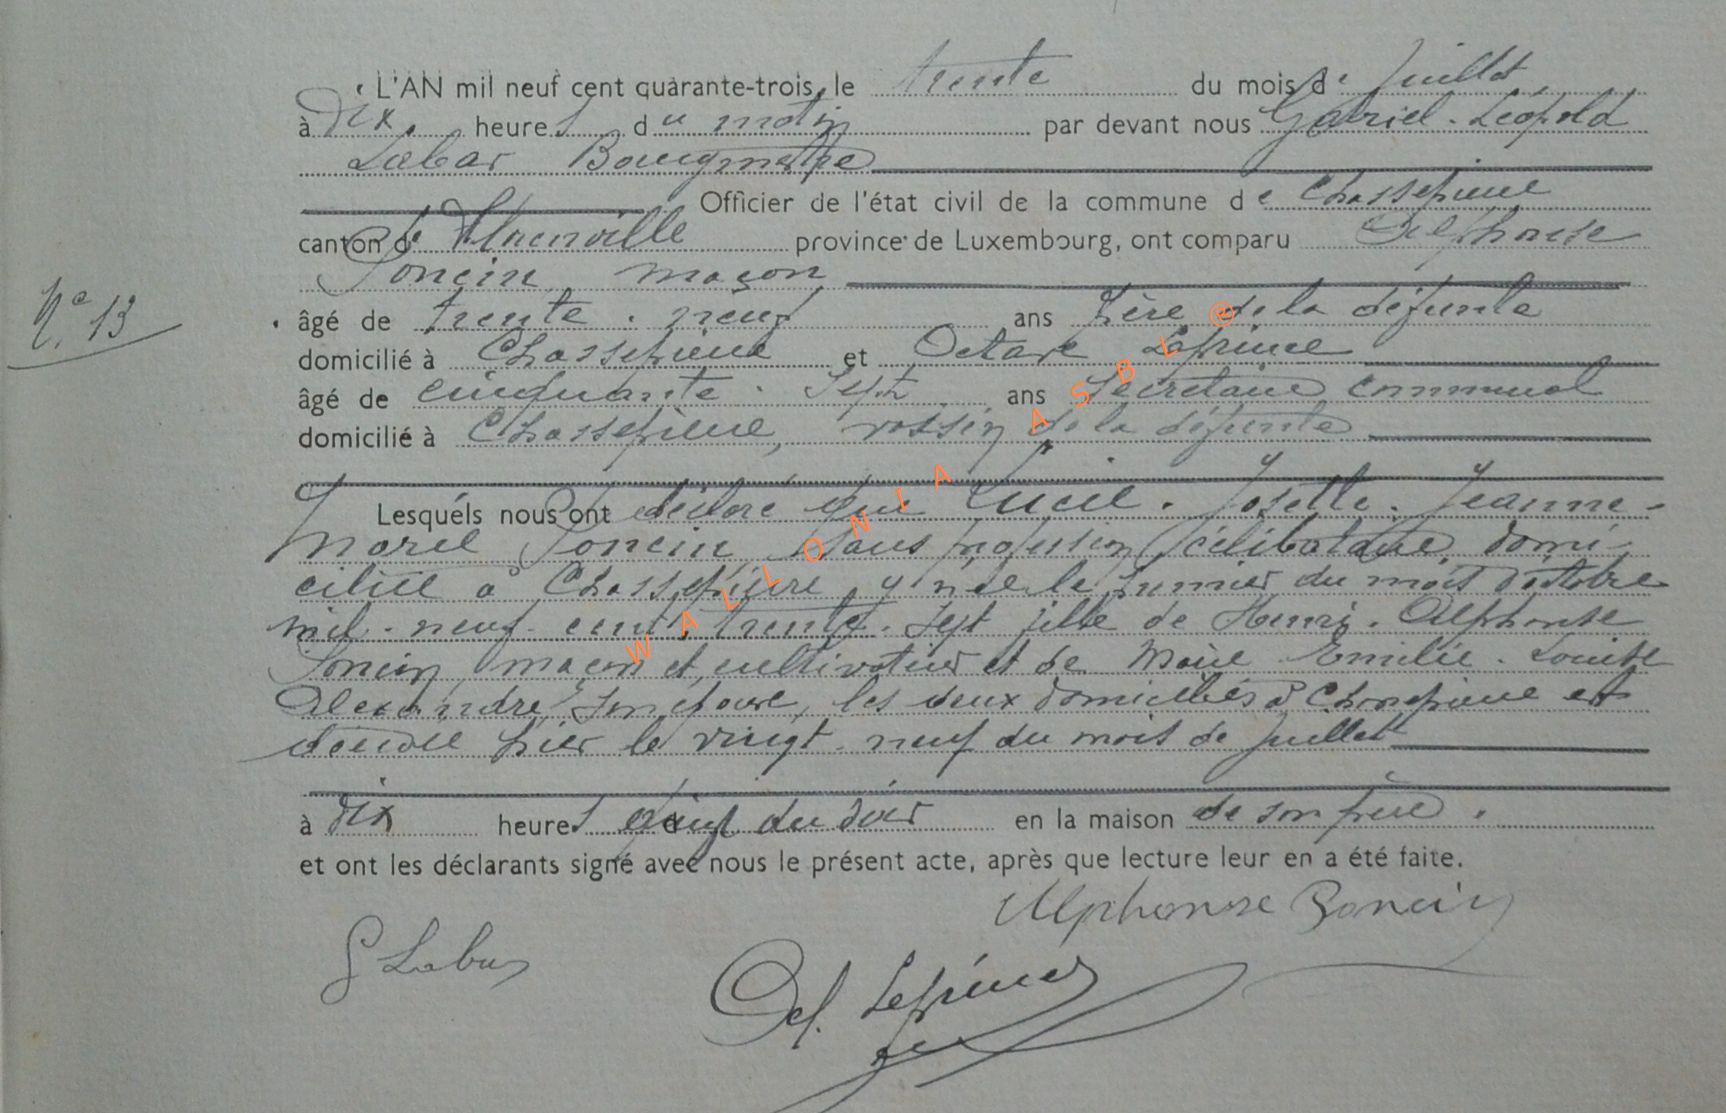 L'AN mil neuf cent quarante-trois, le trente du mois de Juillet
à dix heures du matin par devant nous Gabriel-Léopold
Labar Bourgmestre
Officier de l'état civil de la commune de Chassepierre
canton de Florenville province de Luxembourg, ont comparu Alphonse
Poncin maçon
N° 13
âgé de trente-neuf ans Père de la défunte
domicilié à Chassepierre et Octave Lefrince
âgé de cinquante-sept ans Secrétaire communal
domicilié à Chassepierre, voisin de la défunte
Lesquels nous ont déclaré que Lucie-Josette-Jeanne-
Marie Poncin sans profession célibataire domi-
ciliée à Chassepierre y née le premier du mois d'octobre
mil-neuf-cent-trente-sept fille de Henri-Alphonse
Poncin maçon et cultivateur et de Marie-Emilie-Louise
Alexandre son épouse, les deux domiciliés à Chassepierre est
décédée hier le vingt-neuf du mois de Juillet
à dix heures du soir en la maison de son père.
et ont les déclarants signé avec nous le présent acte, après que lecture leur en a été faite.
Alphonse Poncin
G Labar
Oct. Lefrince
WALLONIA ASBL ®